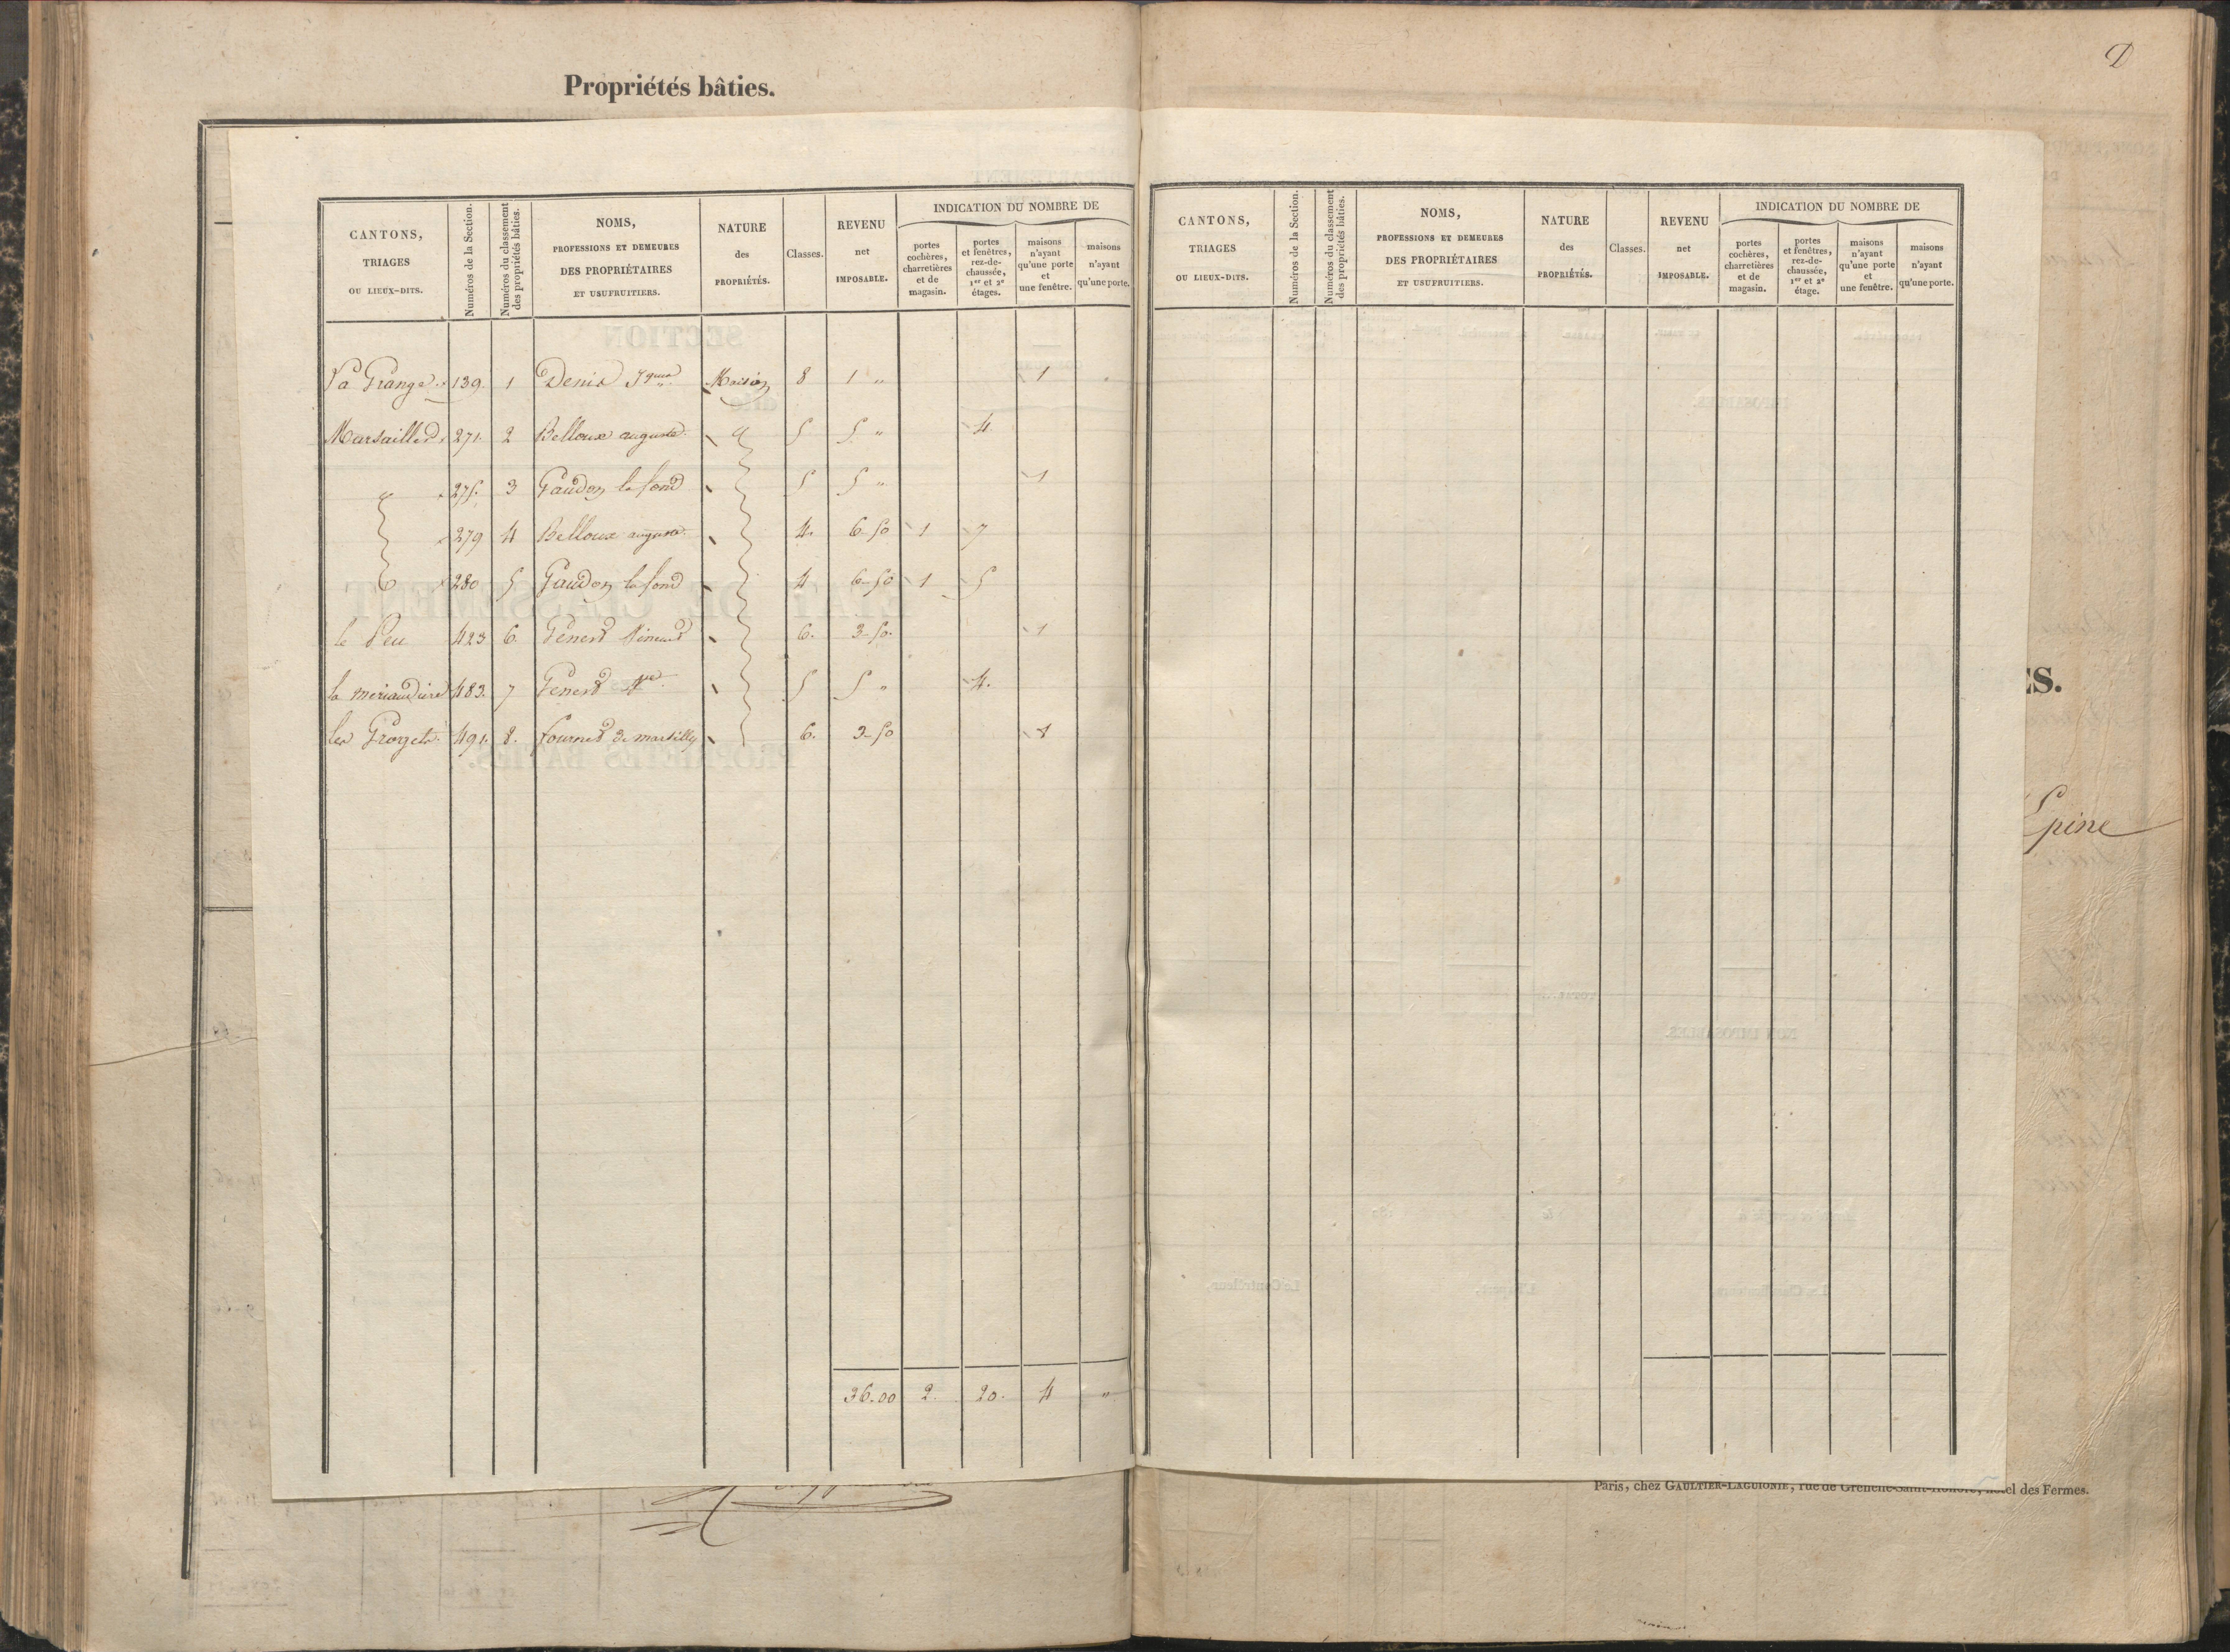 Propriétés bâties.
D
CANTONS, TRIAGES OU LIEUX-DITS. | Numéros de la Section. | Numéros du classement des propriétés bâties. | NOMS, PROFESSIONS ET DEMEURES DES PROPRIÉTAIRES ET USUFRUITIERS. | NATURE des PROPRIÉTÉS. | Classes. | REVENU net IMPOSABLE. | INDICATION DU NOMBRE DE | portes cochères, charretières et de magasin. | portes et fenêtres, rez-de-chaussée, 1er et 2e étages. | maisons n'ayant qu'une porte et une fenêtre. | maisons n'ayant qu'une porte.
La Grange. 139. 1 Denis Jques Maison 8 1 " 1
Marsailles. 271. 2 Belloux auguste 5 5 " 4
275. 3 Gaudon lafond 5 5 " 1
279 4 Belloux auguste 4. 6-50 1 7
280 5 Gaudon lafond 4 6-50 1 5
le Peu 423 6. Genest 6. 3-50. 1
la meriaudiere 483. 7 Genest 5 5 " 4.
les 491. 8. fournet de marsilly 6. 3-50 1
36.00 2. 20. 4 "
CANTONS, TRIAGES OU LIEUX-DITS. | Numéros de la Section. | Numéros du classement des propriétés bâties. | NOMS, PROFESSIONS ET DEMEURES DES PROPRIÉTAIRES ET USUFRUITIERS. | NATURE des PROPRIÉTÉS. | Classes. | REVENU net IMPOSABLE. | INDICATION DU NOMBRE DE | portes cochères, charretières et de magasin. | portes et fenêtres, rez-de-chaussée, 1er et 2e étage. | maisons n'ayant qu'une porte et une fenêtre. | maisons n'ayant qu'une porte.
ES.
Epine
Paris, chez GAULTIER-LAGUIONIE, rue de Grenelle-Saint-Honoré, hôtel des Fermes.